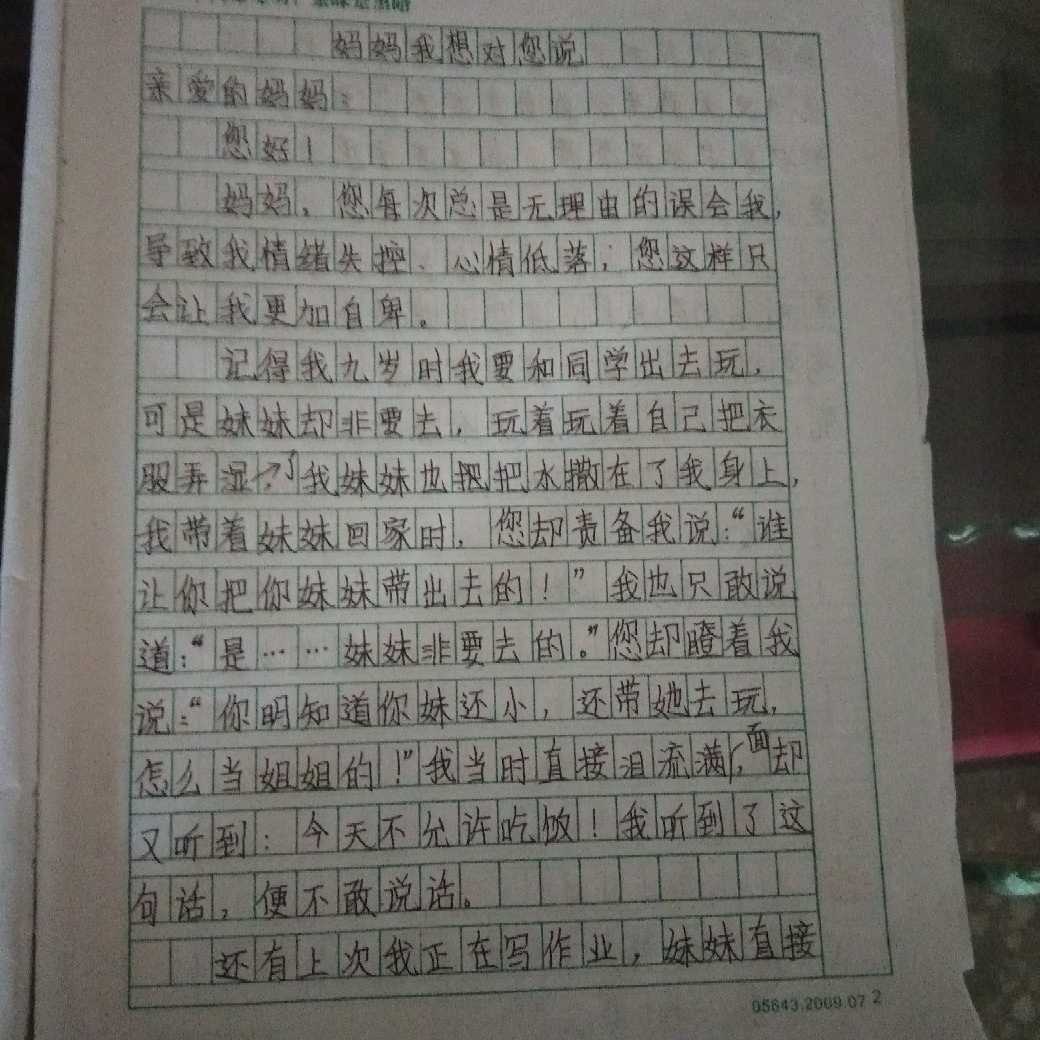 妈妈我想对您说
亲爱的妈妈：
您好！
妈妈，您每次总是无理由的误会我，
导致我情绪失控、心情低落；您这样只
会让我更加自卑。
记得我九岁时我要和同学出去玩，
可是妹妹却非要去，玩着玩着自己把衣
服弄湿了，我妹妹也把水撒在了我身上，
我带着妹妹回家时，您却责备我说：“谁
让你把你妹妹带出去的！”我也只敢说
道：“是……妹妹非要去的。”您却瞪着我
说：“你明知道你妹还小，还带她去玩，
怎么当姐姐的！”我当时直接泪流满面，却
又听到：今天不允许吃饭！我听到了这
句话，便不敢说话。
还有上次我正在写作业，妹妹直接
05643.2009.07 2